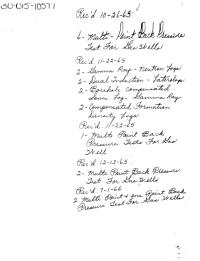 30-015-10571
Rec'd 10-26-65
6- Multi-Point Back Pressure
Test For Gas Wells
Rec'd 11-22-65
2- Gamma Ray-Neutron Logs
2- Dual Induction - Laterlogs
2- Borehole Compensated
Sonic Log, Gamma Ray
2- Compensated Formation
Density Logs
Rec'd 11-22-65
1- Multi Point Back
Pressure Tests For Gas
Well
Rec'd 12-13-65
2- Multi Point Back Pressure
Test For Gas Wells
Rec'd 7-1-66
2 Multi Point & one Point Back
Pressure Test For Gas Wells